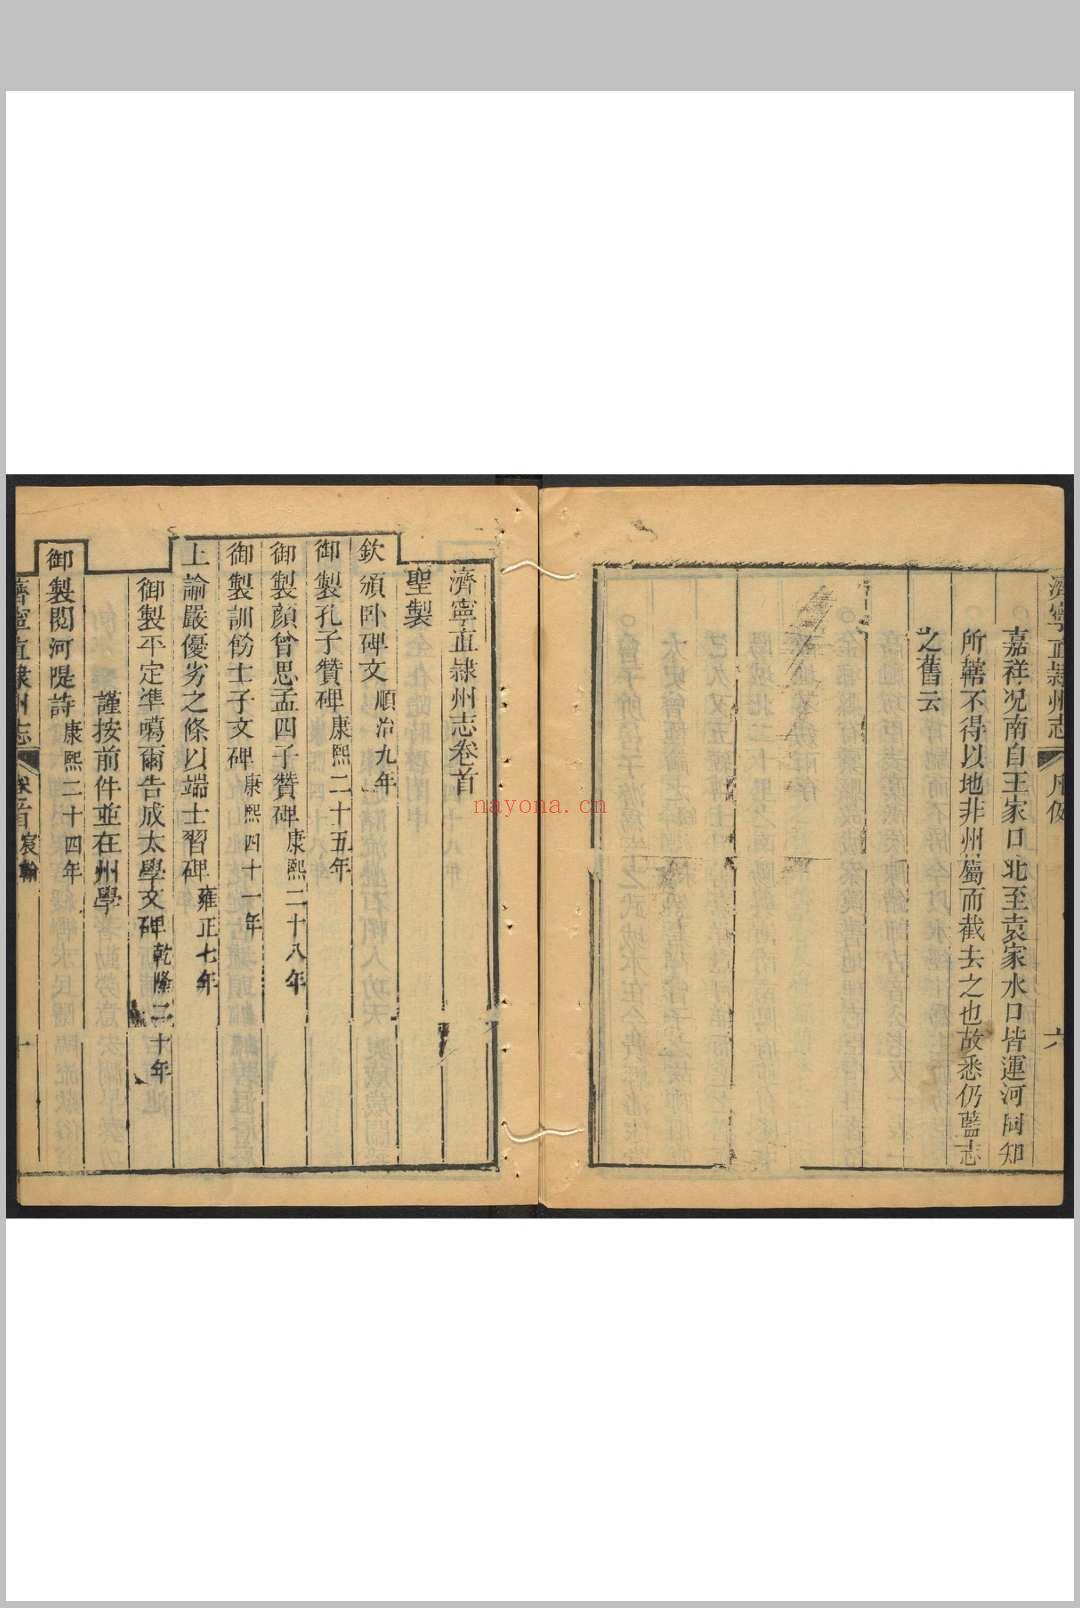 濟寧直隸州志
嘉祥况南自王家口北至袁家水口皆運河同知
所轄不得以地非州屬而截去之也故悉仍藍志
之舊云
六
濟寧直隸州志卷首
聖製
欽頒卧碑文順治九年
御製孔子贊碑康熙二十五年
御製顔曾思孟四子贊碑康熙二十八年
御製訓飭士子文碑康熙四十一年
上諭嚴優劣之條以端士習碑雍正七年
御製平定準噶爾告成太學文碑乾隆二十年
謹按前件並在州學
御製閱河隄詩康熙二十四年
濟寧直隸州志 卷首宸翰 一
nayona.cn